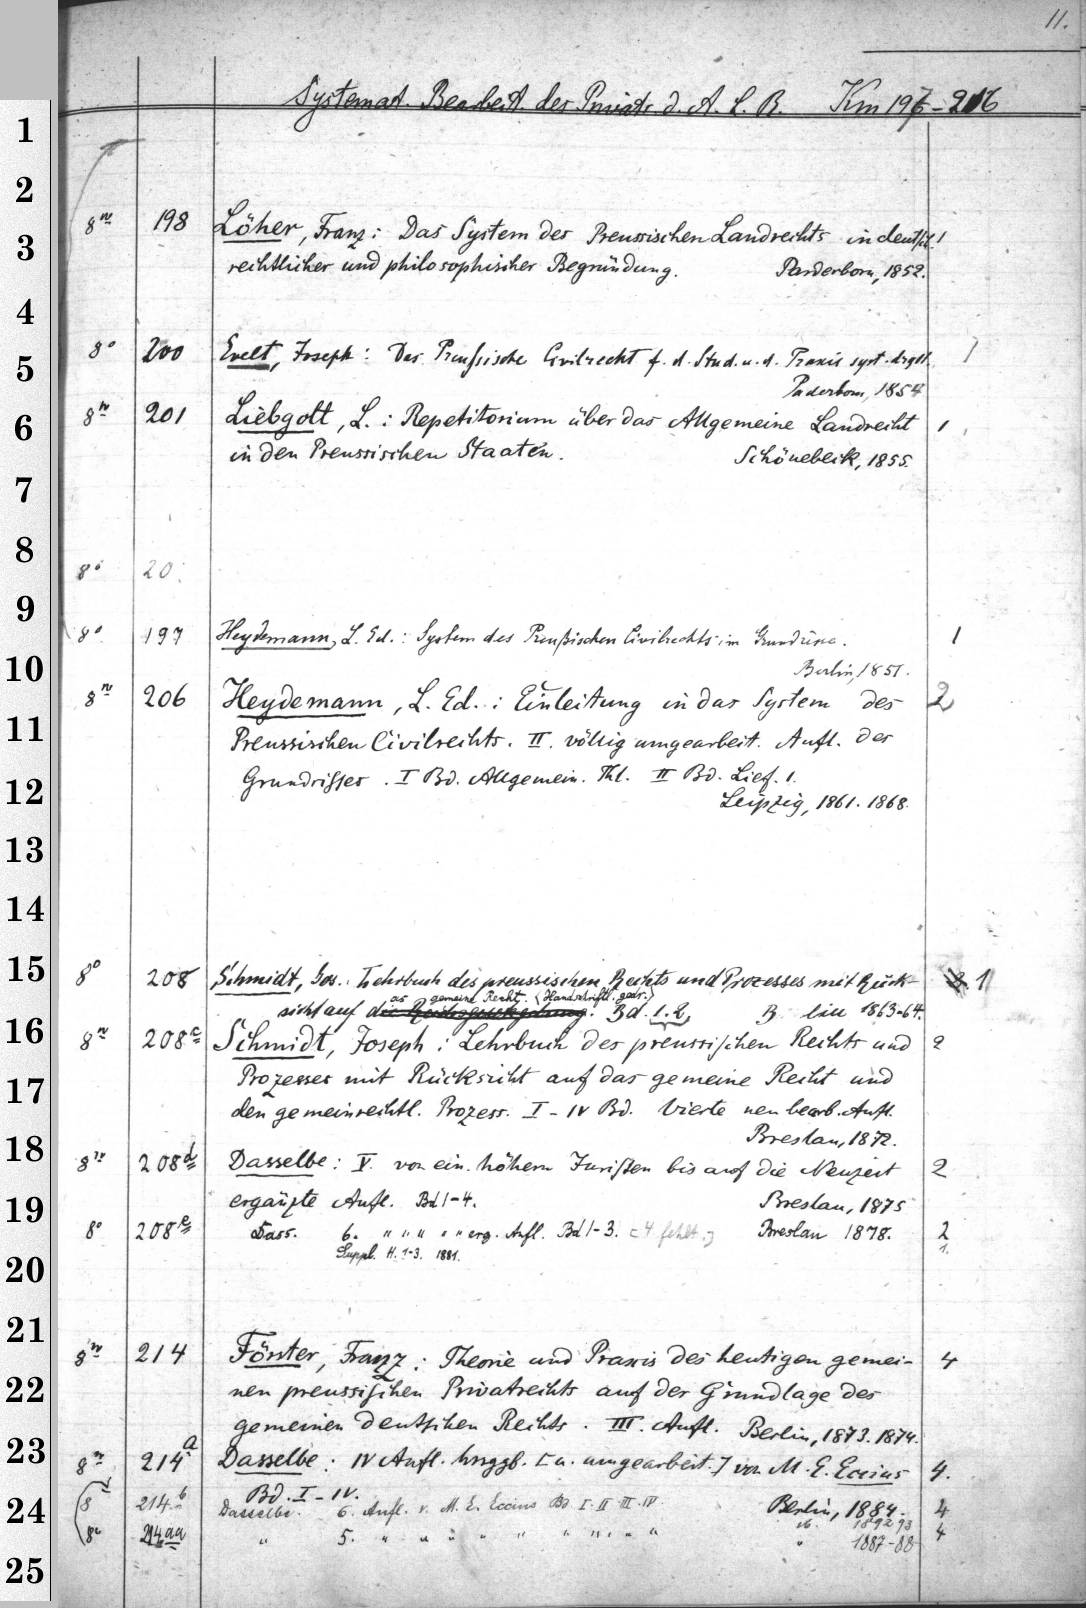 11.
Systemat. Bearbeit. des Privatr. d. A. L. R. Km 197-216
8vo 198 Löher, Franz: Das System des Preussischen Landrechts in deutsch- 1
rechtlicher und philosophischer Begründung. Parderborn, 1852.
8o 200 Evelt, Joseph: Das Preußische Civilrecht f. d. Stud. u. d. Praxis syst. drgst. 1
Paderborn, 1854
8vo 201 Liebgott, L.: Repetitorium über das Allgemeine Landrecht 1
in den Preussischen Staaten. Schönebeck, 1855.
8o 20
8o 197 Heydemann, L. Ed.: System des Preußischen Civilrechts im Grundrisse. 1
Berlin, 1851.
8vo 206 Heydemann, L. Ed.: Einleitung in das System des 2
Preussischen Civilrechts. II. völlig umgearbeit. Aufl. des
Grundrisses. I Bd. Allgemein. Thl. II Bd. Lief. 1.
Leipzig, 1861. 1868.
8o 208 Schmidt, Jos.: Lehrbuch des preussischen Rechts und Prozesses mit Rück- 1
as gemeine Recht. (Handschriftl. gedr.)
sicht auf die Reichsgesetzgebung. Bd. 1. 2, B lin 1863-64.
8vo 208c Schmidt, Joseph: Lehrbuch des preussischen Rechts und 2
Prozesses mit Rücksicht auf das gemeine Recht und
den gemeinrechtl. Prozess. I-IV Bd. Vierte neu bearb. Aufl.
Breslau, 1872.
8vo 208d Dasselbe: V. von ein. höhern Juristen bis auf die Neuzeit 2
ergänzte Aufl. Bd 1-4. Breslau, 1875
8o 208e Dass. 6. " " " " " erg. Aufl. Bd 1-3. [4 fehlt.] Breslau 1878. 2
Suppl. H. 1-3. 1881. 1.
8vo 214 Förster, Franz: Theorie und Praxis des heutigen gemei- 4
nen preussischen Privatrechts auf der Grundlage des
gemeinen Deutschen Rechts. III. Aufl. Berlin, 1873. 1874.
8vo 214a Dasselbe: IV Aufl. hrsggb. [u. umgearbeit.] von M. E. Eccius 4.
Bd. I-IV. Berlin, 1884.
8 214b Dasselbe. 6. Aufl. v. M. E. Eccius Bd I. II. III. IV. ib. 1892 93 4
8o 214aa " 5. " " " " " " " " " " " 1887-88 4
1
2
3
4
5
6
7
8
9
10
11
12
13
14
15
16
17
18
19
20
21
22
23
24
25